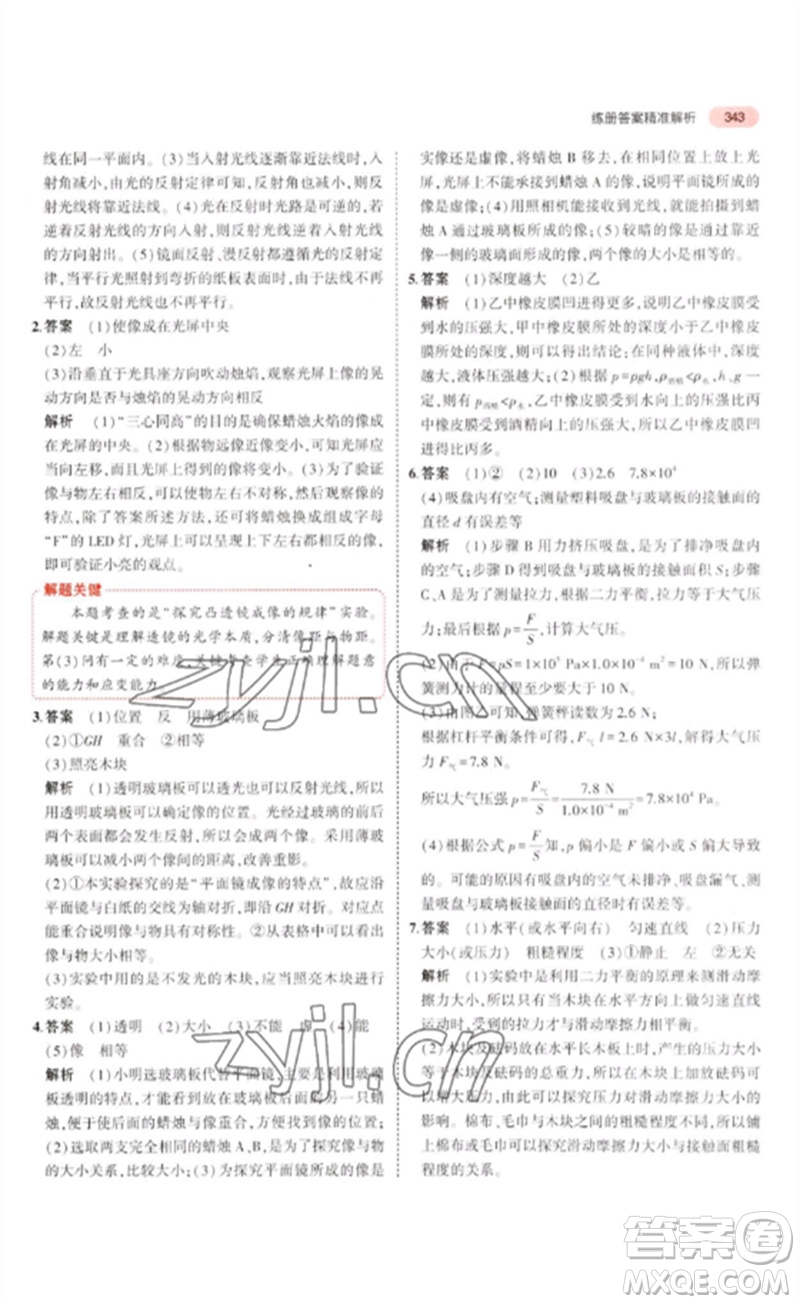 练册答案精准解析 343
线在同一平面内。(3)当入射光线逐渐靠近法线时,入
射角减小,由光的反射定律可知,反射角也减小,即反
射光线将靠近法线。(4)光在反射时光路是可逆的,若
逆着反射光线的方向入射,则反射光线会逆着入射光线
的方向射出。(5)镜面反射、漫反射都遵循光的反射定
律,当平行光照射到弯折的纸板表面时,法线不再
平行,故反射光线也不再平行。
2.答案 (1)使像成在光屏中央
(2)左 小
(3)沿垂直于光具座方向吹动烛焰,观察光屏上像的晃
动方向是否与烛焰的晃动方向相反
解析 (1)“三心同高”的目的是确保蜡烛火焰的像成
在光屏的中央。(2)根据物远像近像变小,可知光屏应
当向左移动,且光屏上得到的像将变小。(3)为了验证
像与物左右相反,可以利用左右不对称、上下不对称的
特点,除了答案所述方法,还可将蜡烛换成组成字母
“F”的 LED 灯,光屏上会得到倒立、左右相反的像,
即可验证小亮的观点。
解题关键
本题考查的是“探究凸透镜成像的规律”实验。
解题关键是理解透镜的光学本质,分清像距与物距。
第(3)问有一定的难度,关键考查学生正确理解题意
的能力和应变能力。
3.答案 (1)位置 反 用薄玻璃板
(2)①GH 重合 ②相等
(3)照亮木块
解析 (1)玻璃板可以透光也可以反射光线,所以
用透明玻璃板可以确定像的位置。光经过玻璃的前后
两个表面都会发生反射,所以会成两个像。采用薄玻
璃板可以减小两个像间的距离,改善重影。
(2)①本实验探究的是“平面镜成像的特点”,故应沿
平面镜与白纸的交线为轴对折,即沿 GH 对折。对应点
能重合说明像与物具有对称性。②从表格中可以看出
像与物大小相等。
(3)实验中用的是不发光的木块,应当照亮木块进行
实验。
4.答案 (1)透明 (2)大小 (3)不能 虚 (4)能
(5)像 相等
解析 (1)小明选玻璃板代替平面镜,主要是利用玻
璃板透明的特点,才能看到在玻璃板后面的另一只蜡
烛,便于让后面的蜡烛与像重合,方便找到像的位置;
(2)选取两支完全一样的蜡烛 A、B,是为了探究像与物
的大小关系,比较大小;(3)为了探究平面镜所成的像是
实像还是虚像,将蜡烛 B 移去,在其位置上放上光
屏,光屏上不能承接到蜡烛 A 的像,说明平面镜所成的
像是虚像;(4)用照相机能接收到光线,就能拍摄到蜡
烛 A 通过玻璃板所成的像;(5)较暗的像是由离蜡烛
近像一侧的玻璃面形成的像,两个像的大小是相等的。
5.答案 (1)深度越大 (2)乙
解析 (1)乙中橡皮膜凹进得更多,说明乙中橡皮膜受
到水的压强大,甲中橡皮膜所处的深度小于乙中橡皮
膜所处的深度,即可得出结论;在同种液体中,深度
越大,液体压强越大;(2)根据 p=ρgh,ρ酒精<ρ水,h、g 一
定,所以有 p酒精<p水,乙中橡皮膜受到水向上的压强比丙
中橡皮膜受到的酒精向上的压强大,故乙橡皮膜向上
凹进得比丙多。
6.答案 (1)② (2)10 (3)2.6 7.8×10⁴
(4)吸盘内有空气;测量塑料吸盘与玻璃板的接触面的
直径 d 有误差等
解析 (1)步骤 B 用力挤压吸盘,是为了排净吸盘内
的空气;步骤 D 是为了测量吸盘与玻璃板的面积;步骤
C、A 是为了测量拉力,根据二力平衡,拉力等于大气压
力;最后根据 p=F/S,计算大气压。
(2)由 F=pS=1×10⁵ Pa×1.0×10⁻⁴ m²=10 N,所以弹
簧测力计的量程至少大于 10 N。
(3)由图 2 可知,弹簧秤读数为 2.6 N;
根据杠杆平衡条件可得,F气 l=2.6 N×3l,解得大气压
力为 F气=7.8 N。
所以大气压强 p=F气/S=7.8 N/(1.0×10⁻⁴ m²)=7.8×10⁴ Pa。
(4)根据公式 p=F/S知,p 偏小是 F 偏小或 S 偏大导致
的。可能的原因有吸盘内的空气未排净、吸盘漏气、测
量吸盘与玻璃板接触面的直径时有误差等。
7.答案 (1)水平(或水平向右) 匀速直线 (2)压力
大小(或压力) 粗糙程度 (3)①静止 左 ②无关
解析 (1)实验是利用二力平衡的原理来测量滑动摩
擦力大小的,应当在水平方向上拉动木块做匀速直线
运动时,受到的拉力才与滑动摩擦力相平衡。
(2)木块及砝码放在长木板上时,产生的压力大小
与木块及砝码的总重力大小相等,所以增加砝码可以
改变压力大小,从而探究压力大小对滑动摩擦力大小的
影响。棉布、毛巾与木块之间的粗糙程度不同,所以铺
上棉布或毛巾可以探究滑动摩擦力大小与接触面粗糙
程度的关系。
zyjl.cn
zyjl.cn
答案圈
MXQE.COM